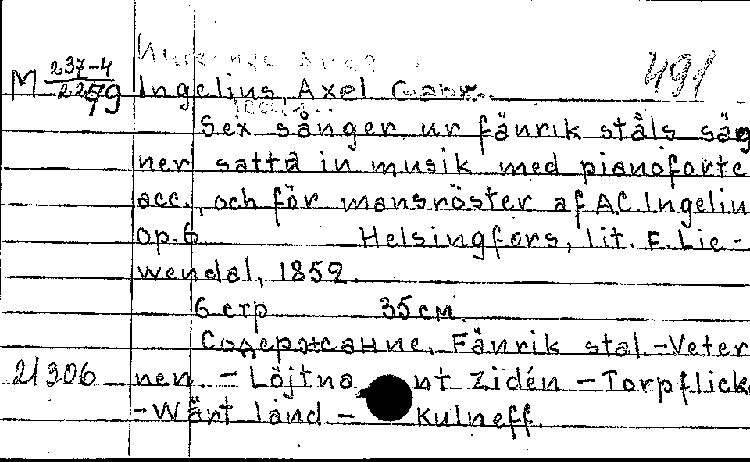 491
M 237-4
2279 Ingelius, Axel Gabr.
Sex sånger ur fänrik ståls säg
ner satta in musik med pianoforte
acc., och för mansröster af A.C. Ingeliu
op. 6 Helsingfors, lit. F. Lie-
wendal, 1852.
6 стр 35 см.
Содержание, Fänrik stal. - Veter
21306 nen. - Löjtna nt Zidén - Torpflick
- Wårt land - Kulneff.